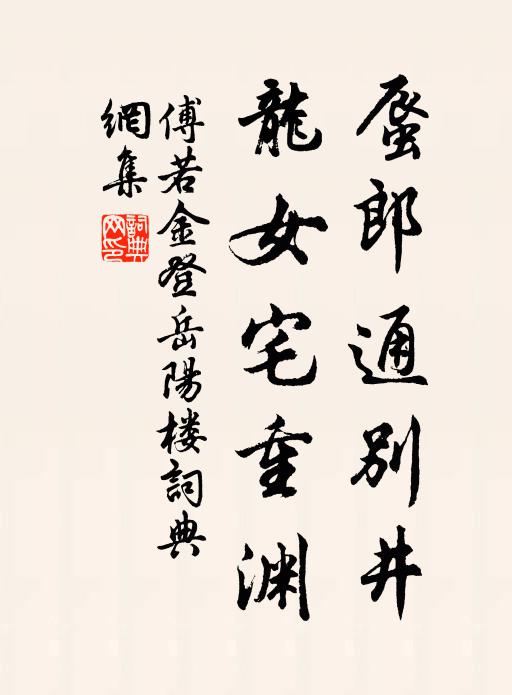 蜃郎通別井
龍女宅重淵
傅若金登岳陽楼詞典
網集
詞典网印